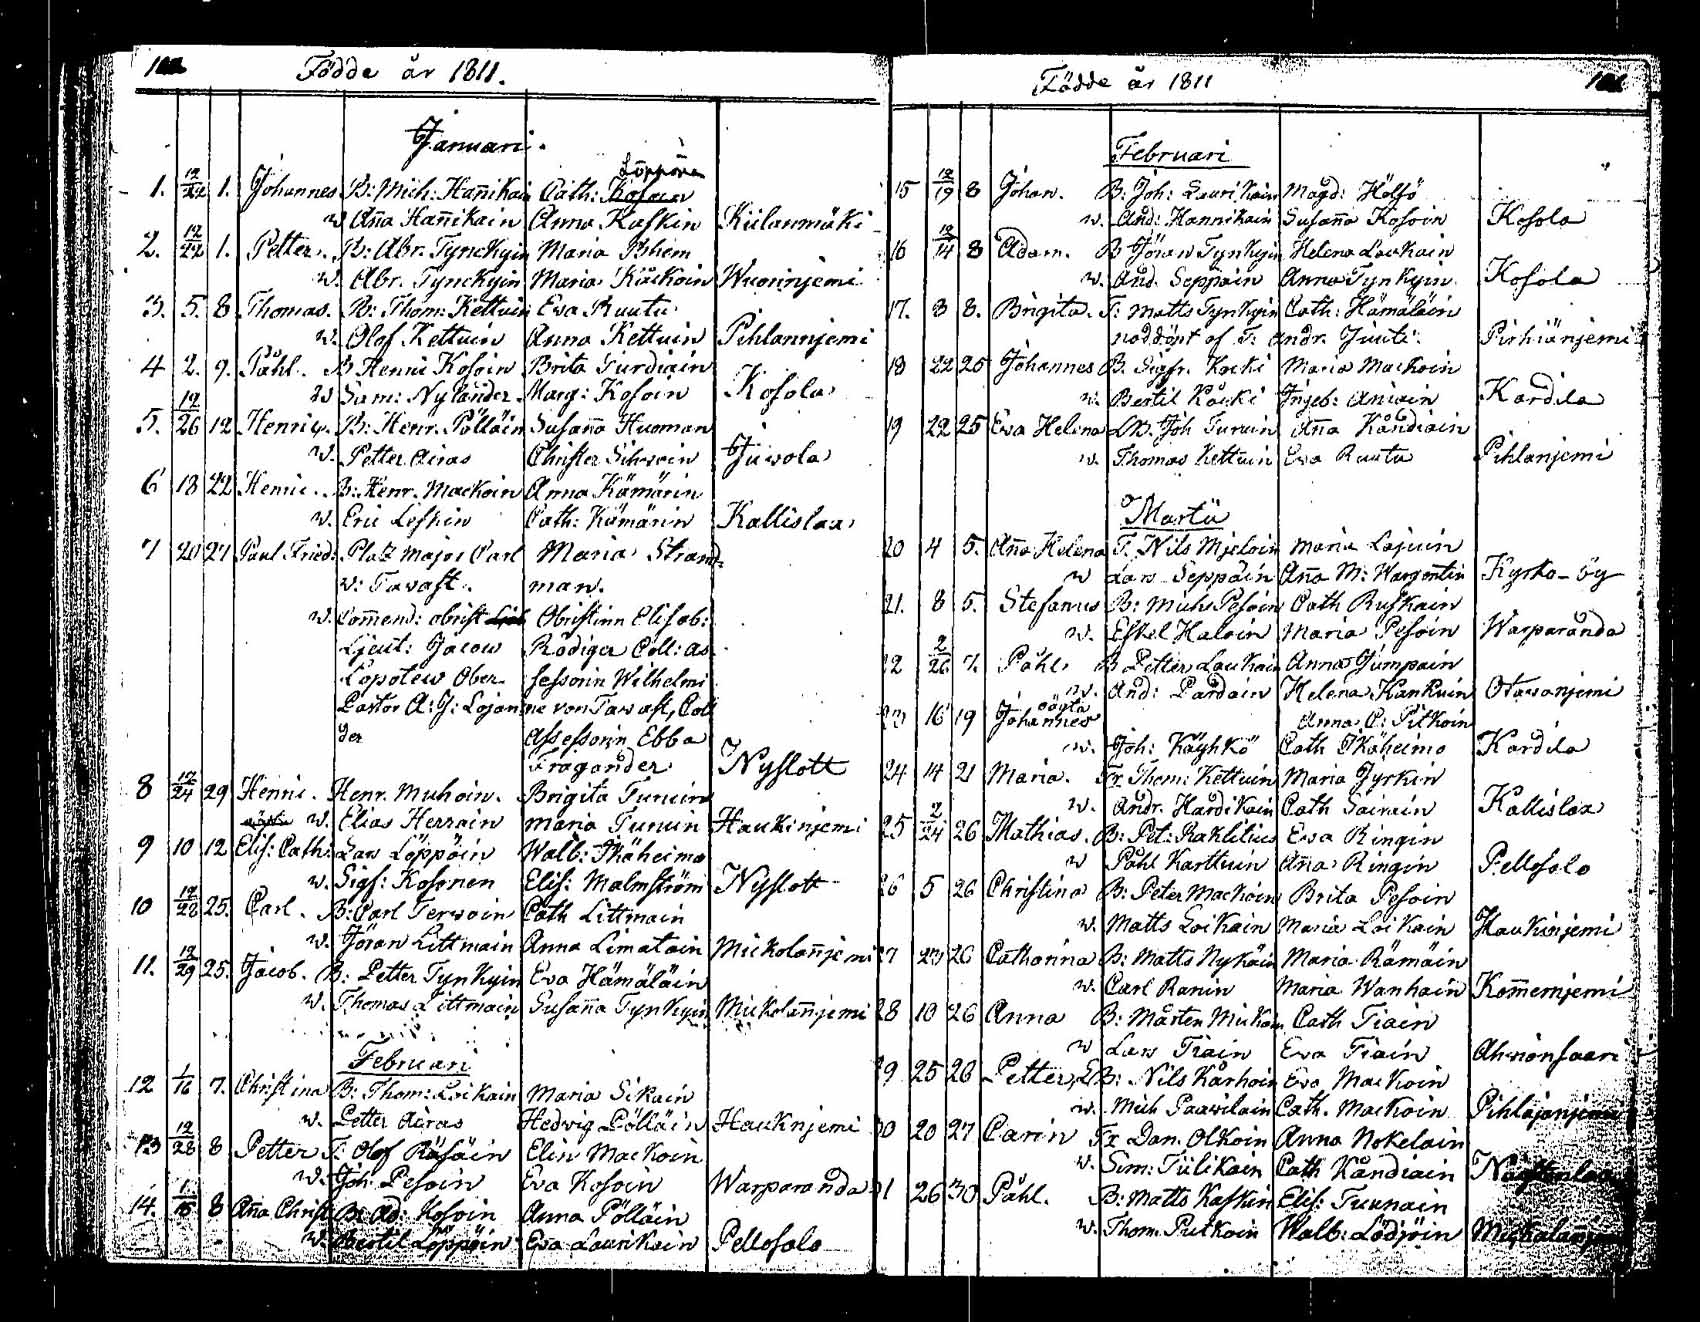 Födde år 1811.
Januari.
Löppöin
1. 12/22 1. Johannes B: Mich: Hañikain Cath: Kosoin
w. Aña Hañikain Anna Kaskin Kiilanmäki
2. 12/22 1. Petter. B: Abr. Tynckyin Maria Ihlem
w. Abr. Tynckyin Maria Räckoin Wuorinjemi
3. 5. 8 Thomas. B: Thom: Kettuin Ewa Ruutu
w. Olof Kettuin Anna Kettuin Pihlannjemi
4 2. 9. Påhl. B Henric Kosoin Brita Turdiain
w Sam: Nyländer Marg: Kosoin Kosola
5. 12/26 12 Henric. B: Henr. Pölläin Susaña Huoman
w. Petter Airas Christer Sihwoin Juwola
6 18 22 Henric. B: Henr. Mackoin Anna Kämärin
w. Eric Leskin Cath: Kämärin Kallislax
7 20 27 Paul Fried: Platz Major Carl Maria Strand-
v: Tawast. man.
w. Comend: obrist Obristinn Elisab:
Ljeut: Jacow Rödiger Coll: as
Lopotew Ober- sessorin Wilhelmi
Pastor A: J: Lojan ne von Tawast, Coll
der Assessorin Ebba
Fragander Nyslott
8 12/24 29 Henric. Henr. Muhoin. Brigita Turuin
w. Elias Herrain Maria Turuin Haukinjemi
9 10 12 Elis: Cath: Lars Löppöin Walb: Ikäheimo
w. Sigf: Kosonen Elis: Malmström Nyslott
10 12/28 25. Carl. B: Carl Terwoin Cath Littmain
w. Jöran Littmain Anna Limatain Mickolañjemi
11. 12/29 25. Jacob. B: Petter Tynkyin Eva Hämäläin
w. Thomas Littmain Susaña Tynkyin Mickolañjemi
Februari
12 1/16 7. Christina B: Thom: Loikain Maria Sikain
w. Petter Airas Hedvig Pölläin Hauknjemi
13 12/28 8 Petter T. Olof Räsäin Elin Mackoin
w. Joh: Pesoin Eva Kosoin Warparanda
14. 1/15 8 Aña Christ B: Ad: Kosoin Anna Pölläin
w. Bertil Löppöin Eva Laurikain Pellosalo
Födde år 1811
Februari
15 12/19 8 Johan. B: Joh: Laurikain Magd: Hölsö
w. And: Hannikain Susaña Kosoin Kosola
16 12/14 8 Adam. B Jöran Tynkyin Helena Laukain
w. And. Seppäin Anna Tynkyin Kosola
17. 3 8. Brigita. T: Matts Tynkyin Cath: Hämäläin
nöddöpt af T: Andr. Juuti. Pirhiänjemi
18 22 25 Johannes B. Sigfr. Kocki Maria Mackoin
w. Bertil Kåcki Ingeb: Aniain Kardila
19 22 25 Ewa Helena LB. Joh Turuin Aña Kåndiain
w. Thomas Kettuin Eva Ruutu Pihlanjemi
Martii
20 4 5. Aña Helena T. Nils Mjeloin Maria Lajuin
w Lars Seppäin Aña M: Wargentin Kyrko-by
21. 8 5. Stefanus B: Mich Pesoin Cath Ruskain
w. Eskel Haloin Maria Pesoin Warparanda
22 2/26 7. Påhl. B Petter Laukain Anna Jumpain
w. And: Pardain Helena Kankuin Otawanjemi
23 16 19 Johannes oägta Anna C: Pitkoin
w. Joh: Käyhkö Cath Ikäheimo Kardila
24 14 21 Maria. Tr Thom: Kettuin Maria Jyrkin
w. Andr. Hardikain Cath Sairain Kallislax
25 2/24 26 Mathias. B: Pet: Raklilius Ewa Ringin
w Påhl Karttuin Aña Ringin Pellosalo
26 5 26 Christina B: Peter Mackoin Brita Pesoin
w. Matts Loikain Maria Loikain Haukinjemi
27 23 26 Catharina B: Matts Nykäin Maria Rämäin
w. Carl Ranin Maria Wanhain Komernjemi
28 10 26 Anna B: Mårten Mickoin Cath Tiain
w Lars Tiain Eva Tiain Ahwionsaari
29 25 26 Petter, B: Nils Kårhoin Eva Mackoin
w. Mich Paawilain Cath. Mackoin Pihlajanjemi
30 20 27 Carin Tr Dan. Olkoin Anna Nokelain
w. Sim: Tiilikain Cath Kåndiain
31 26 30 Påhl. B: Matts Kaskin Elis: Tuunain
w. Thom. Putkoin Walb: Lödjöin